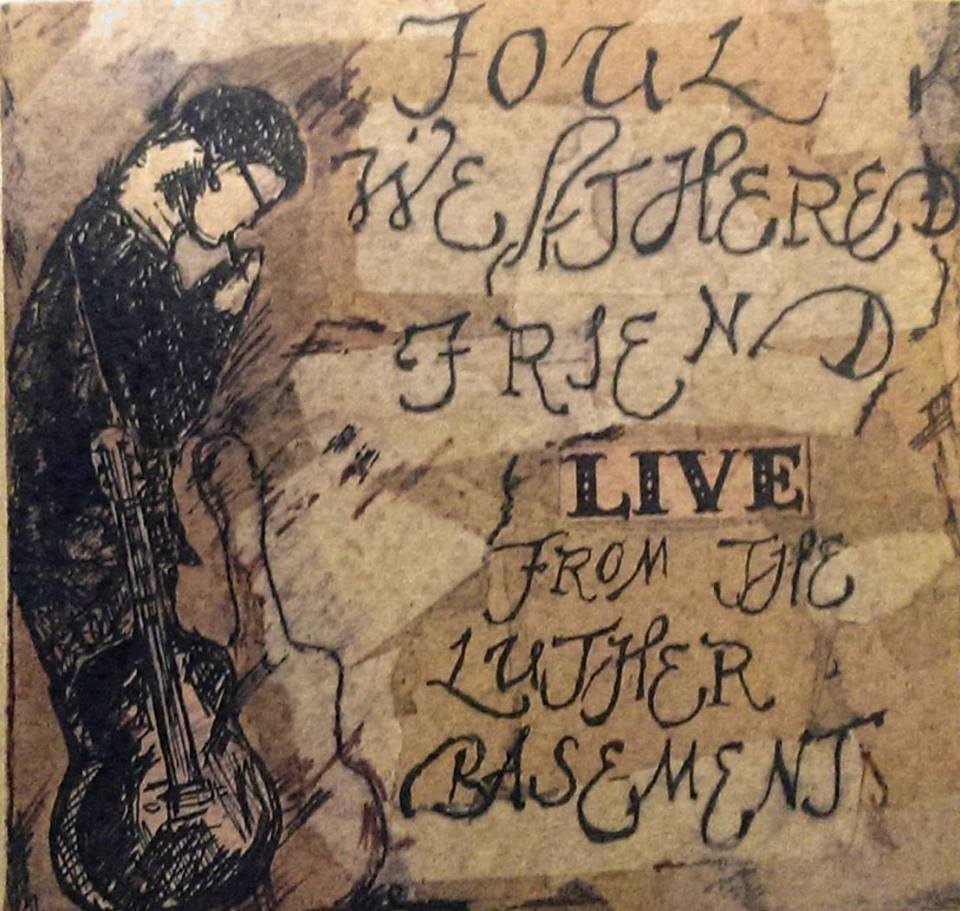 FOUL
WEATHERED
FRIEND
LIVE
FROM THE
LUTHER
BASEMENT